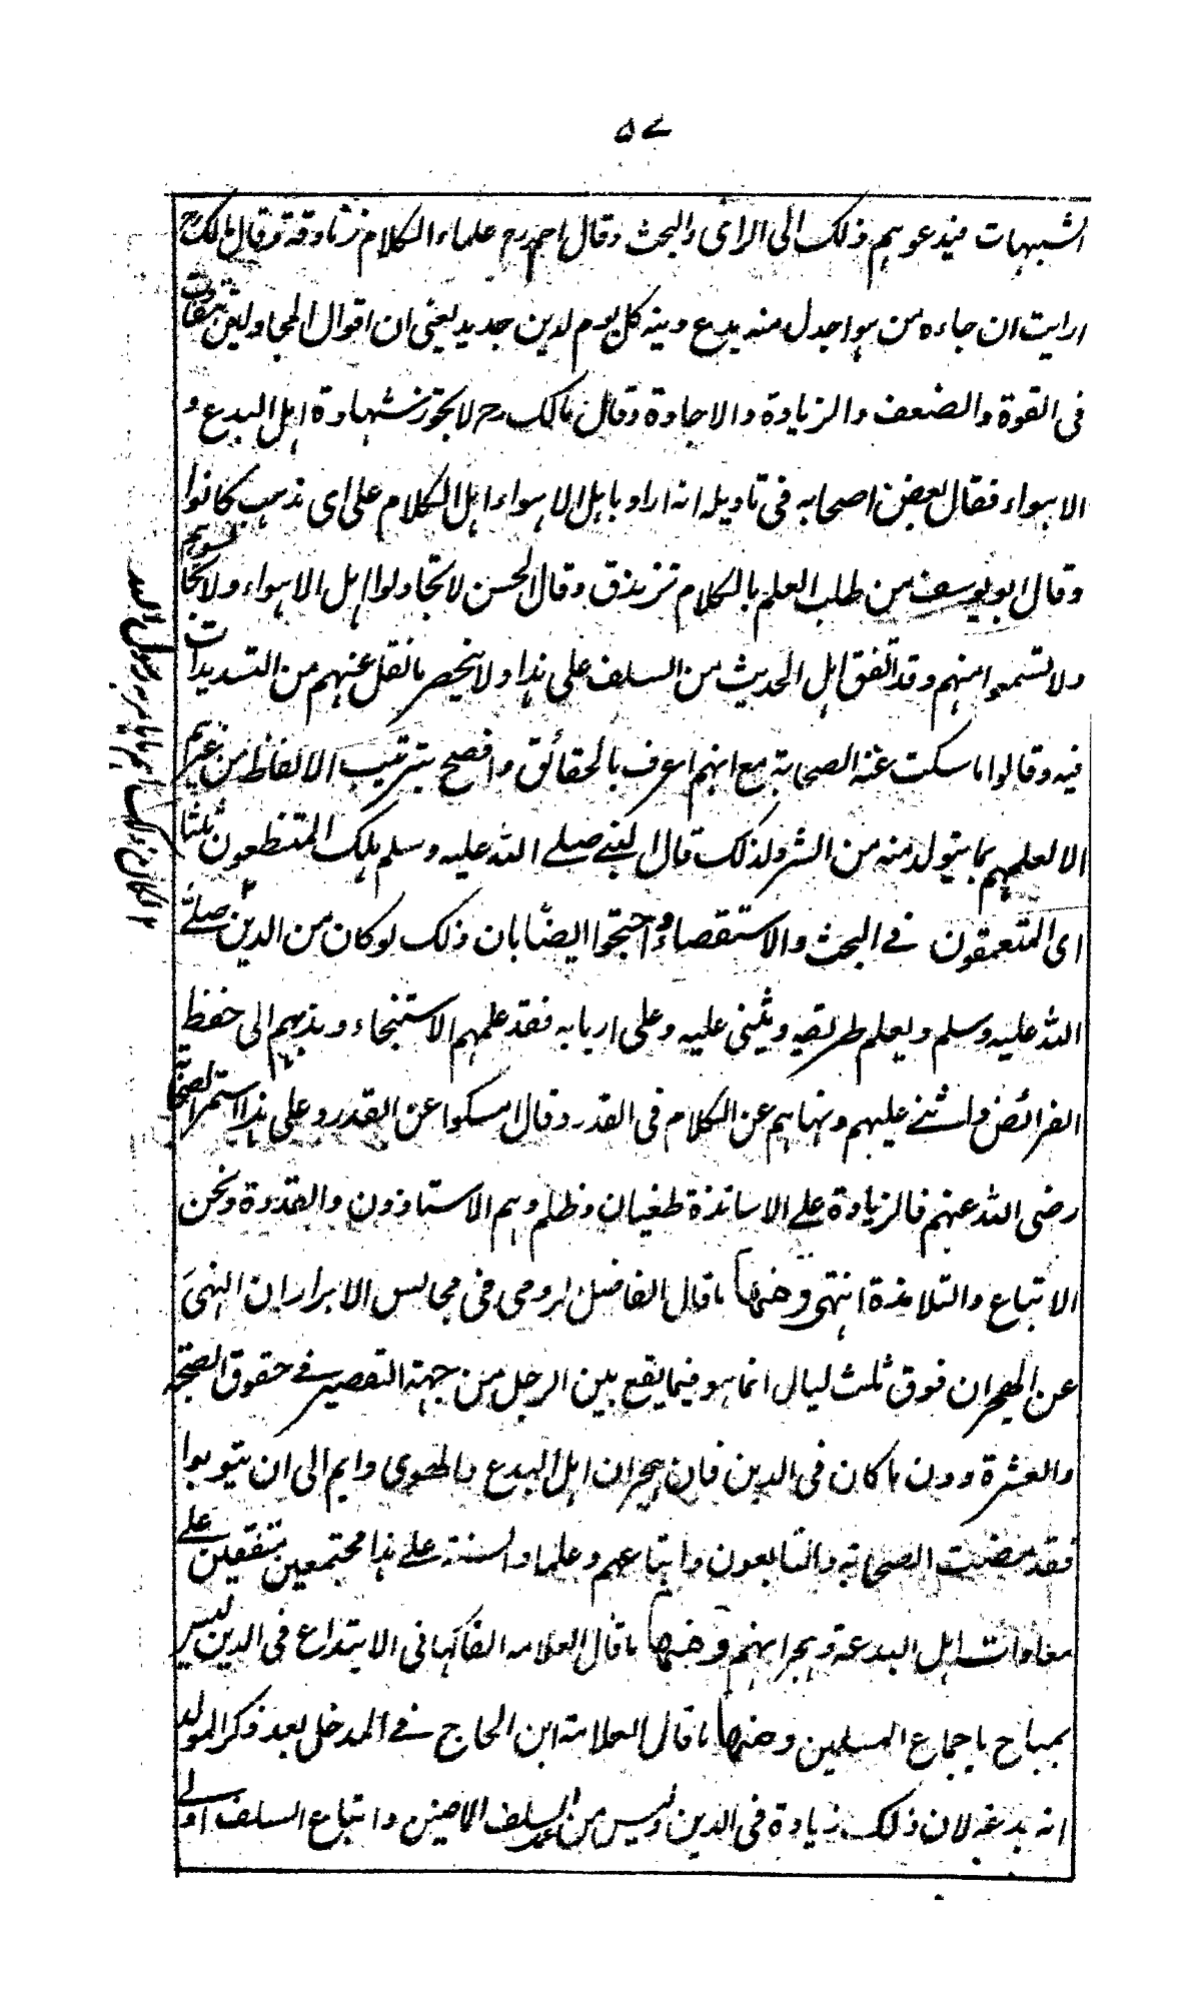 ۵۷
الشبهات فيدعوهم ذلك الى الراى والبحث وقال احمد رح علماء الكلام زنادقة وقال مالك رح
ارايت ان جاءه من هو اجدل منه يدع دينه كل يوم لدين جديد يعنى ان اقوال المجادلين تتفاوت
فى القوة والضعف والزيادة والاجادة وقال مالك رح لا يجوز شهادة اهل البدع و
الاهواء فقال بعض اصحابه فى تاويله انه اراد باهل الاهواء اهل الكلام على اى مذهب كانوا
وقال ابو يوسف من طلب العلم بالكلام تزندق وقال الحسن لا تجادلوا اهل الاهواء ولا تجالسوهم
ولا تسمعوا منهم وقد اتفق اهل الحديث من السلف على هذا ولا ينحصر ما نقل عنهم من التشديدات
فيه وقالوا ما سكت عنه الصحابة مع انهم اعرف بالحقائق وافصح بترتيب الالفاظ من غيرهم
الا لعلمهم بما يتولد منه من الشر ولذلك قال النبى صلى الله عليه وسلم هلك المتنطعون ثلثا
اى المتعمقون فى البحث والاستقصاء واحتجوا ايضا بان ذلك لو كان من الدين صلى
الله عليه وسلم ويعلم طريقه ويثنى عليه وعلى اربابه فقد علمهم الاستنجاء وندبهم الى حفظ
الفرائض واثنى عليهم ونهاهم عن الكلام فى القدر وقال امسكوا عن القدر وعلى هذا استمر الصحابة
رضى الله عنهم فالزيادة على الاساتذة طغيان وظلم وهم الاستاذون والقدوة ونحن
الاتباع والتلامذة انتهى ومنها ما قال الفاضل الرومى فى مجالس الابرار ان النهى
عن الهجران فوق ثلث ليال انما هو فيما يقع بين الرجلين من جهة التقصير فى حقوق الصحبة
والعشرة دون ما كان فى الدين فان هجران اهل البدع والهوى دايم الى ان يتوبوا
فقد مضت الصحابة والتابعون واتباعهم وعلماء السنة على هذا مجتمعين متفقين على
معادات اهل البدعة وهجرانهم ومنها ما قال العلامه الفاكهانى الابتداع فى الدين ليس
بمباح باجماع المسلمين ومنها ما قال العلامة ابن الحاج فى المدخل بعد ذكر المولد
انه بدعة لان ذلك زيادة فى الدين وليس من عمل السلف الماضين واتباع السلف اولى